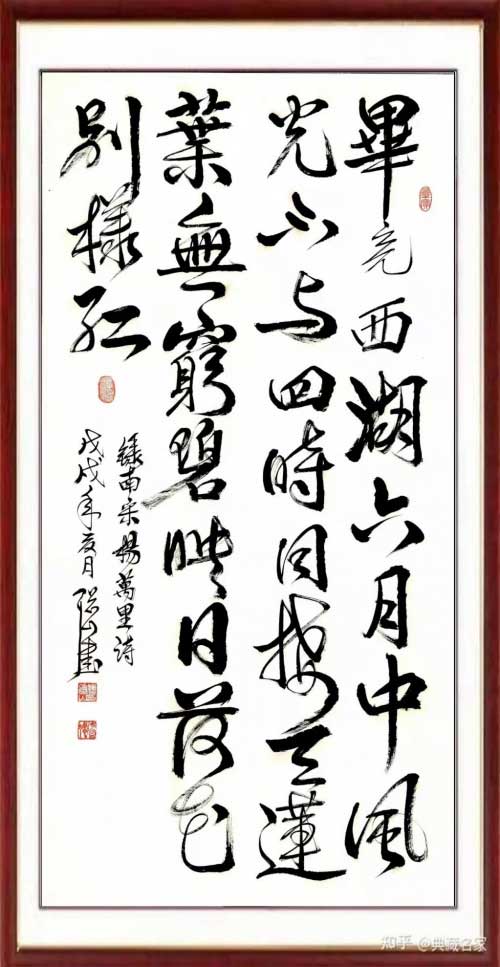 畢竟西湖六月中風
光不与四時同接天蓮
葉無窮碧映日荷花
別樣紅
録南宋楊萬里詩
戊戌年夏月 書
知乎 @典藏名家